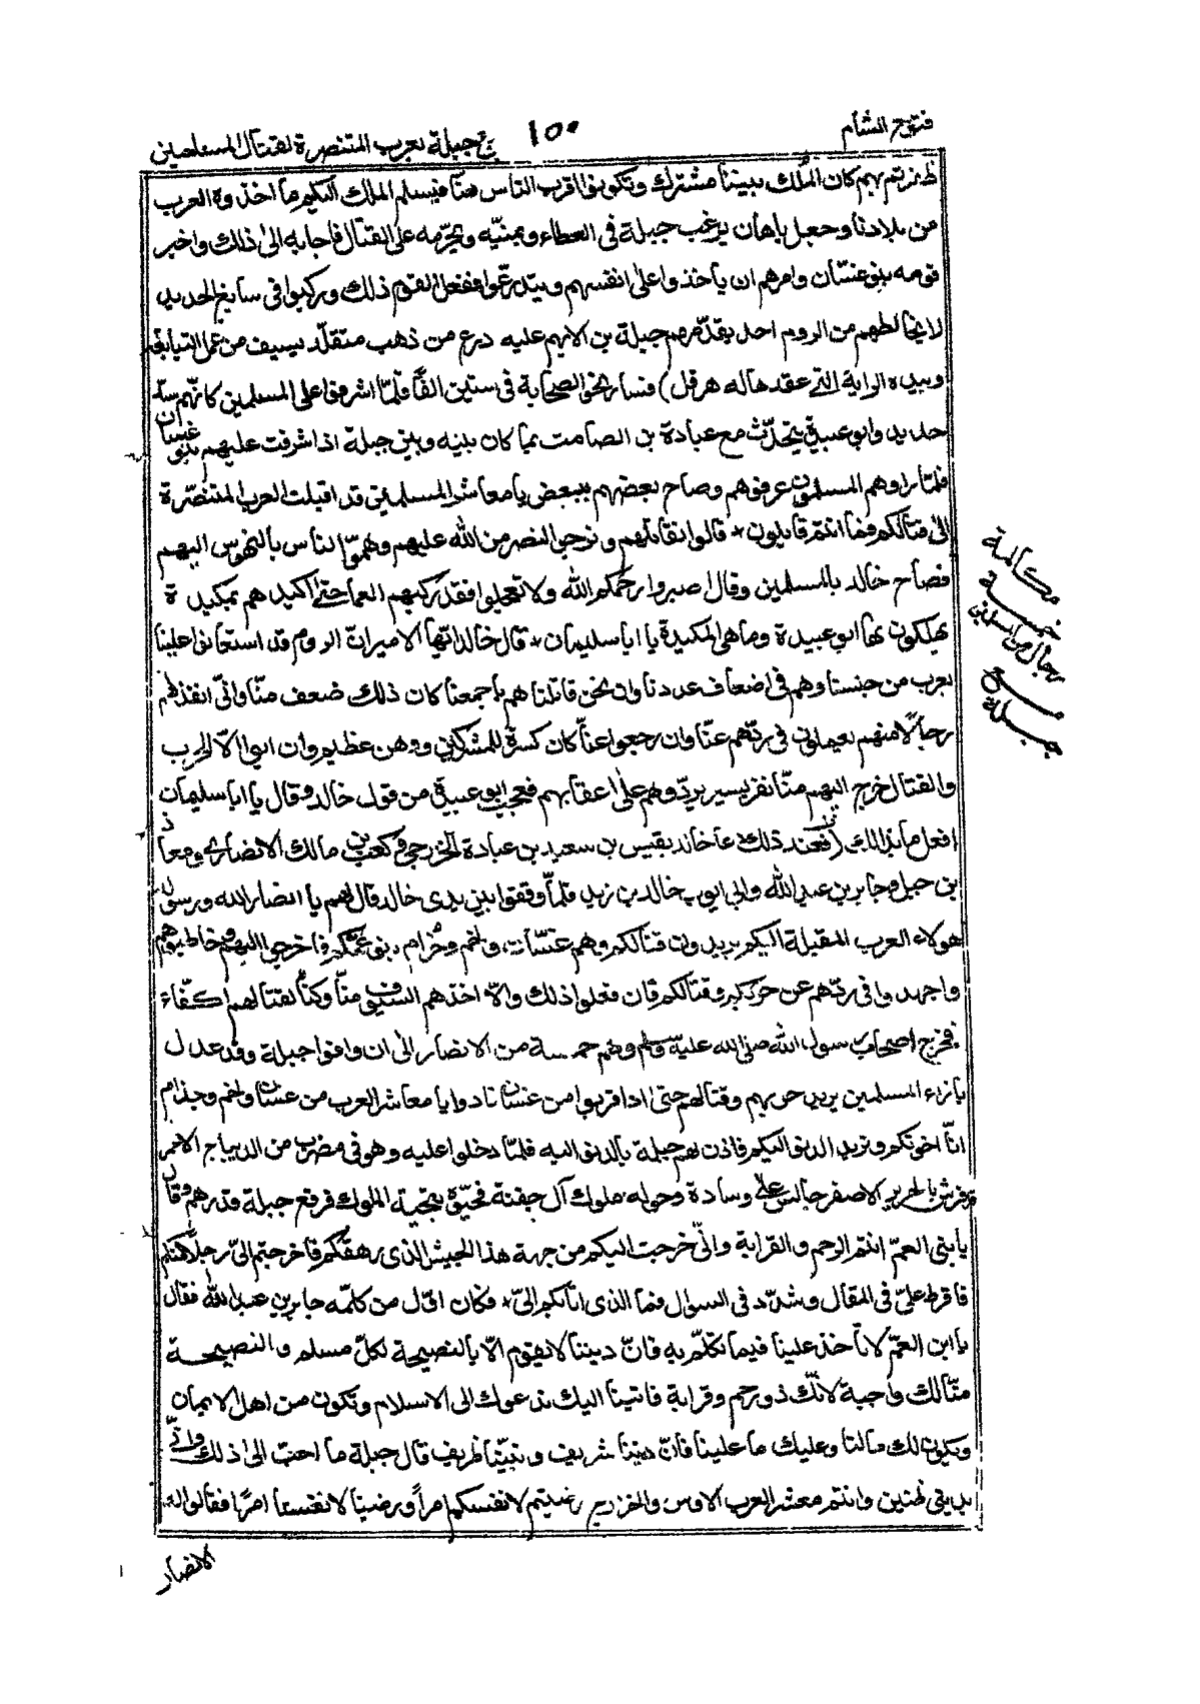 فتوح الشأم
١٥٠
جبلة بعرب المتنصرة لقتال المسلمين
ظفرتم بهم كان الملك بيننا مشترك وتكونوا اقرب الناس منا فيسلم الملك اليكم ما اخذوة العرب
من بلادنا وجعل باهان يرغب جبلة فى العطاء ويمنيّه ويحرّمه على القتال فاجابه الى ذلك واخبر
قومه بنو غسّان وامرهم ان يأخذوا على انفسهم ويتدرّعوا ففعل القوم ذلك وركبوا فى سابغ الحديد
لا يخالطهم من الروم احد يقدّمهم جبلة بن الايهم عليه درع من ذهب متقلّد بسيف من عمل التبابعة
وبيده الراية التى عقدها له هرقل) فسار نحو الصحابة فى ستين الفًا فلمّا اشرفوا على المسلمين كانّهم سدّ
حديد وابو عبيدة يتحدّث مع عبادة بن الصامت بما كان بينه وبين جبلة اذا شرفت عليهم بنو غسان
فلمّا راوهم المسلمون عرفوهم وصاح بعضهم ببعض يا معاشر المسلمين قد اقبلت العرب المتنصّرة
الى قتالكم فما انتم قايلون * قالوا نقاتلهم ونرجوا النصر من الله عليهم وهمّوا الناس بالنهوض اليهم
فصاح خالد بالمسلمين وقال اصبروا رحمكم الله ولا تعجلوا فقد ركبهم العما حتى اكيدهم بمكيدة
يهلكون بها ابو عبيدة وما هى المكيدة يا ابا سليمان * قال خالد ايّها الامير انّ الروم قد استعانوا علينا
بعرب من جنسنا وهم فى اضعاف عددنا وان نحن قاتلناهم باجمعنا كان ذلك ضعف منّا وانّى انفذ لهم
رجالًا منهم يعملون فى ردّهم عنّا وان رجعوا عنّا كان كسرة للمشركين ووهن عظيم وان ابوا الّا الحرب
والقتال خرج اليهم منّا نفر يسير يردّوهم على اعقابهم فعجب ابو عبيدة من قول خالد وقال يا ابا سليمان
افعل ما بدا لك (فعند ذلك دعا خالد بقيس بن سعيد بن عبادة الخزرجى وكعب بن مالك الانصارى ومعاذ
بن جبل وجابر بن عبد الله وابى ايوب خالد بن زيد فلمّا وقفوا بين يدى خالد قال لهم يا انصار الله ورسوله
هولاء العرب المقبلة اليكم يريدون قتالكم وهم غسّان ولخم وجذام بنو عمّكم فاخرجوا اليهم وخاطبوهم
واجهدوا فى ردّهم عن حربكم وقتالكم فان فعلوا ذلك والّا اخذهم السيف منّا وكنّا لقتالهم اكفّاء
فخرج اصحاب رسول الله صلى الله عليه وسلم وهم خمسة من الانصار الى ان وافوا جبلة وقد عدل
بازاء المسلمين يريد حربهم وقتالهم حتى اذا قربوا من غسّان نادوا يا معاشر العرب من غسّان ولخم وجذام
انّا اخوتكم ونريد الدنو اليكم فاذن لهم جبلة بالدنو اليه فلمّا دخلوا عليه وهو فى مضرب من الديباج الاحمر
وفرش بالحرير الاصفر جالس على وسادة وحوله ملوك آل جفنة فحيّوة بتحية الملوك فرفع جبلة قدرهم وقال
يا بنى العمّ انتم الرحم والقرابة وانّى خرجت اليكم من جهة هذا الجيش الذى رهقكم فاخرجتم الىّ رجلًا منكم
فافرط علىّ فى المقال وشدّد فى السوال فما الذى اتا بكم الىّ * وكان اوّل من كلّمه جابر بن عبد الله فقال
يا ابن العمّ لا تأخذ علينا فيما تكلّم به فانّ ديننا لا يقوم الّا بالنصيحة لكلّ مسلم والنصيحة
منّا لك واجبة لانّك ذو رحم وقرابة فاتينا اليك ندعوك الى الاسلام وتكون من اهل الايمان
وتكون لك ما لنا وعليك ما علينا فانّ ديننا شريف ونبيّنا ظريف قال جبلة ما احبّ الى ذلك وانّى
بدينى ظنين وانتم معشر العرب الاوس والخزرج رضيتم لانفسكم امرًا ورضينا لانفسنا امرًا فقالوا له
الانصار
مكالمة
خمسة
رجال من المسلمين
مع
جبلة